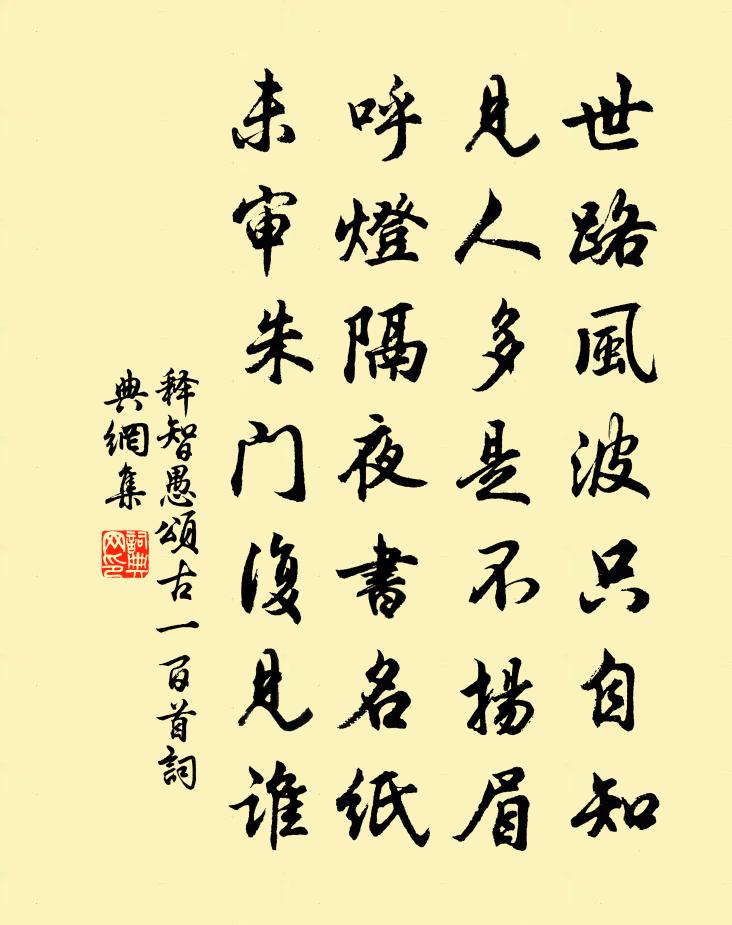 世路風波只自知
見人多是不揚眉
呼燈隔夜書名紙
未审朱门復見誰
释智愚頌古一百首詞
典網集
詞典
网印